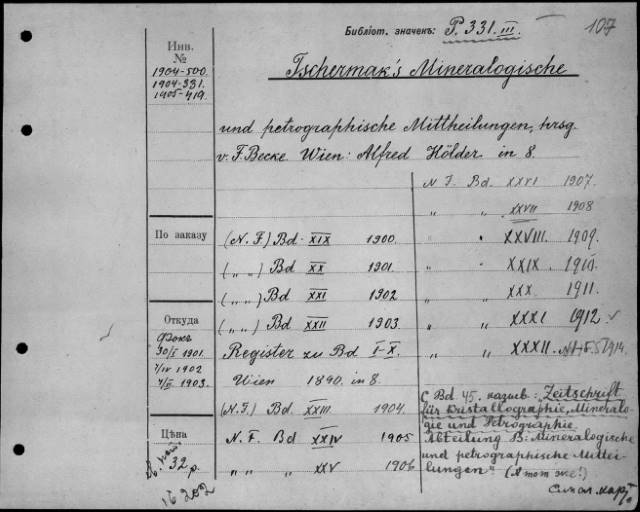 Библіот. значекъ: P. 331. III. 107
Инв.
№
1904-500.
1904-331.
1905-419.
Tschermak's Mineralogische
und petrographische Mittheilungen, hrsg.
v. F. Becke Wien: Alfred Hölder in 8.
По заказу
(N. F.) Bd. XIX 1900.
( „ „ ) Bd XX 1901.
( „ „ ) Bd XXI 1902
( „ „ ) Bd XXII 1903.
Откуда
Фокъ
30/I 1901.
7/IV 1902
4/II 1903.
Register zu Bd I-X.
Wien 1890. in 8.
(N. F.) Bd. XXIII. 1904.
Цѣна
32 р.
16 202
N. F. Bd XXIV 1905
„ „ „ XXV 1906
N F. Bd. XXVI 1907.
„ „ XXVII 1908
„ „ XXVIII. 1909.
„ „ XXIX. 1910.
„ „ XXX. 1911.
„ „ XXXI 1912 v
„ „ XXXII. 1914.
С Bd 45. назыв: „Zeitschrift
für Kristallographie, Mineralo-
gie und Petrographie
Abteilung B: Mineralogische
und petrographische Mittei-
lungen" (